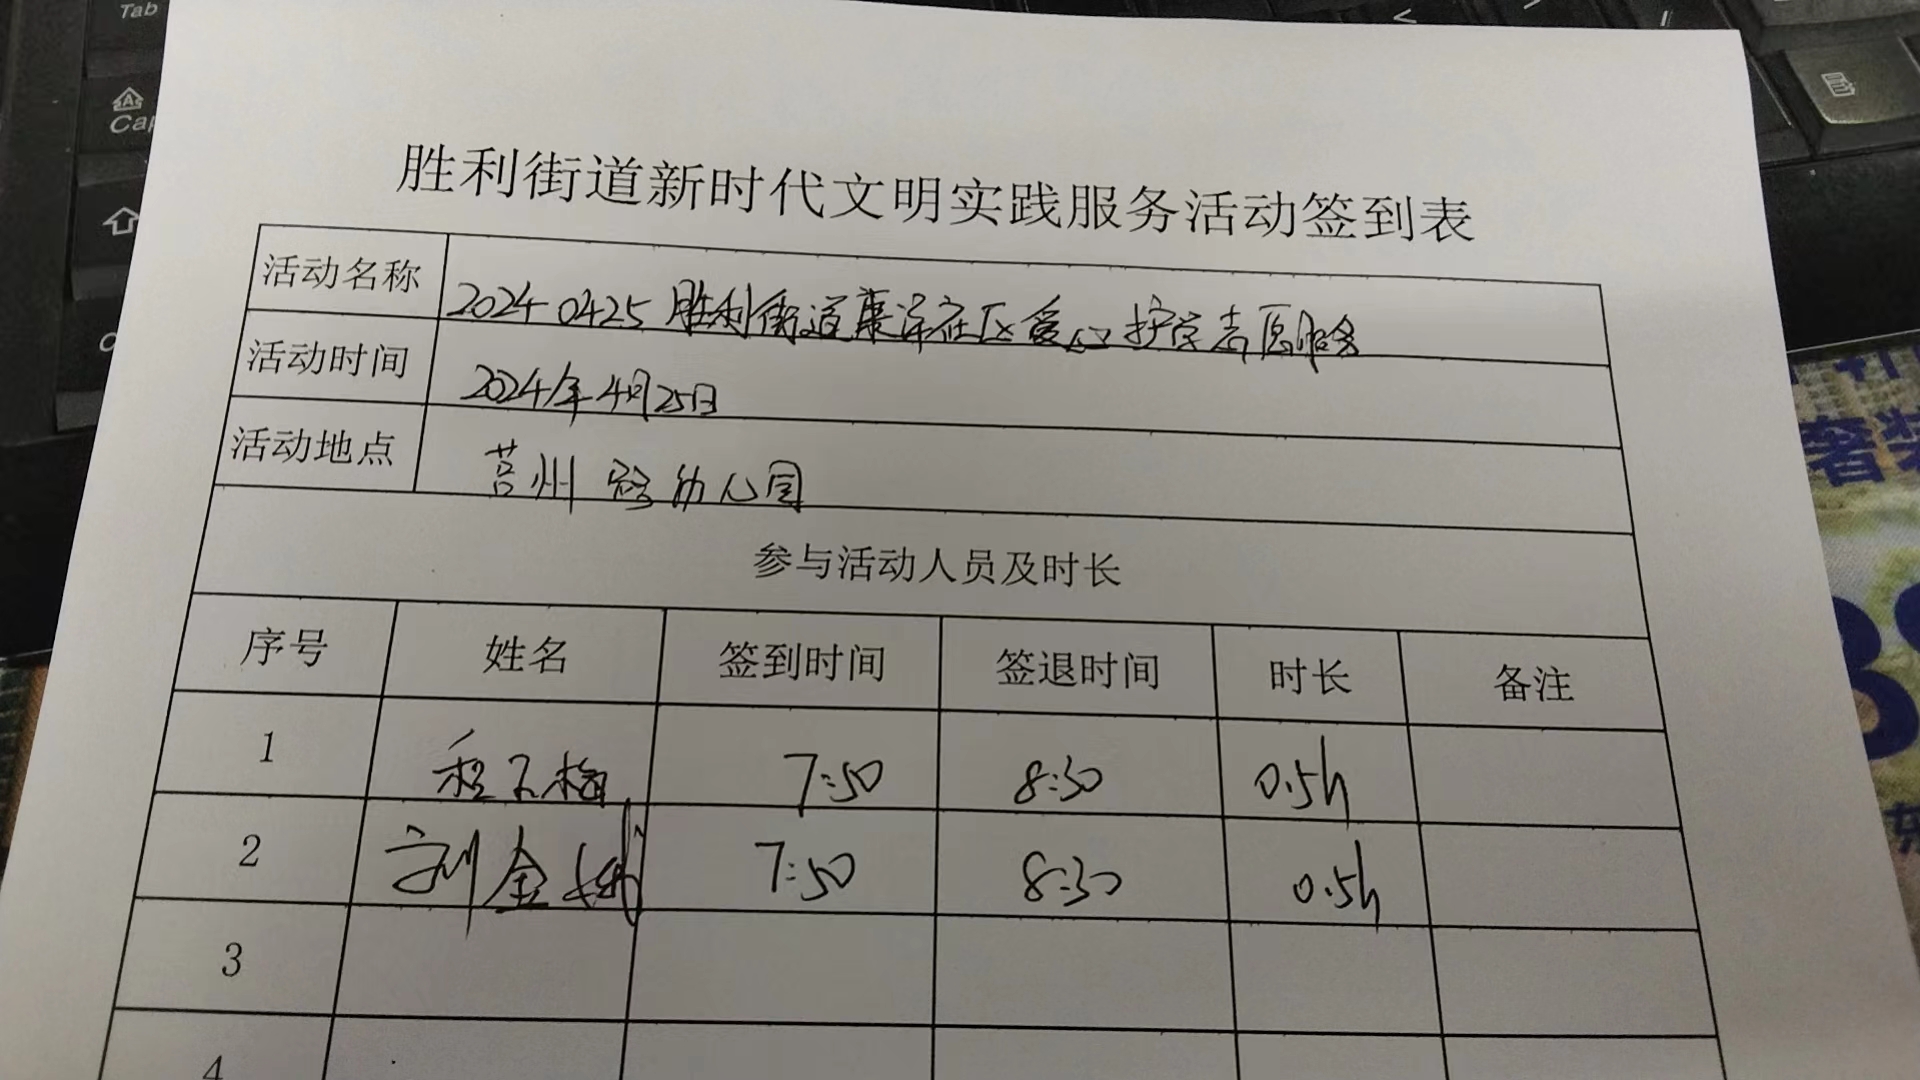 Tab
Cap
胜利街道新时代文明实践服务活动签到表
活动名称 20240425胜利街道康泽社区爱心护学志愿服务
活动时间 2024年4月25日
活动地点 莒州路幼儿园
参与活动人员及时长
序号 姓名 签到时间 签退时间 时长 备注
1 程玉梅 7:50 8:30 0.5h
2 刘金娜 7:50 8:30 0.5h
3
4
奢装